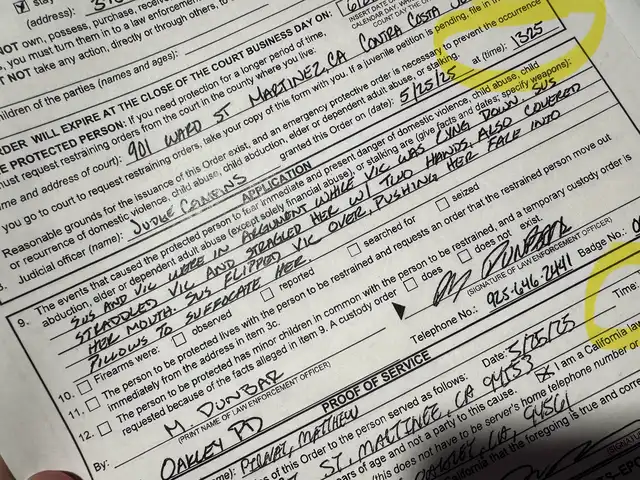 stay
(address):
INSERT DATE OF
CALENDAR DAY, WHI
COUNT DAY THE O
NOT own, possess, purchase, receiv
, you must turn in to a law enforcemen
T NOT take any action, directly or through others, to
hildren of the parties (names and ages):
ORDER WILL EXPIRE AT THE CLOSE OF THE COURT BUSINESS DAY ON:
E PROTECTED PERSON: If you need protection for a longer period of time,
must request restraining orders from the court in the county where you live:
me and address of court): 901 WARD ST MARTINEZ, CA CONTRA COSTA
you go to court to request restraining orders, take your copy of this form with you. If a juvenile petition is pending, file in
Reasonable grounds for the issuance of this Order exist, and an emergency protective order is necessary to prevent the occurrence
or recurrence of domestic violence, child abuse, child abduction, elder or dependent adult abuse, or stalking.
Judicial officer (name): JUDGE granted this Order on (date): 5/25/25 at (time): 1325
APPLICATION
9. The events that caused the protected person to fear immediate and present danger of domestic violence, child abuse, child
abduction, elder or dependent adult abuse (except solely financial abuse), or stalking are (give facts and dates; specify weapons):
SUS AND VIC WERE IN ARGUMENT WHILE VIC WAS LYNG DOWN. SUS
STRADDLED VIC AND STRAGLED HER W/ TWO HANDS, ALSO COVERED
HER MOUTH. SUS FLIPPED VIC OVER, PUSHING HER FACE INTO
PILLOWS TO SUFFOCATE HER.
Firearms were: observed reported searched for seized
10. The person to be protected lives with the person to be restrained and requests an order that the restrained person move out
immediately from the address in item 3c.
11. The person to be protected has minor children in common with the person to be restrained, and a temporary custody order is
requested because of the facts alleged in item 9. A custody order does does not exist.
12.
By: M. DUNBAR
(PRINT NAME OF LAW ENFORCEMENT OFFICER)
(SIGNATURE OF LAW ENFORCEMENT OFFICER)
OAKLEY PD
Telephone No.: 925-646-2441 Badge No.:
PROOF OF SERVICE
name): PIRNAT, MATTHEW
of this Order to the person served as follows: Date: 5/25/25 Time:
ST, MARTINEZ, CA 94553
years of age and not a party to this cause. I am a California law
(this does not have to be server's home telephone number or
OAKLEY, CA, 94561
California that the foregoing is true and corre